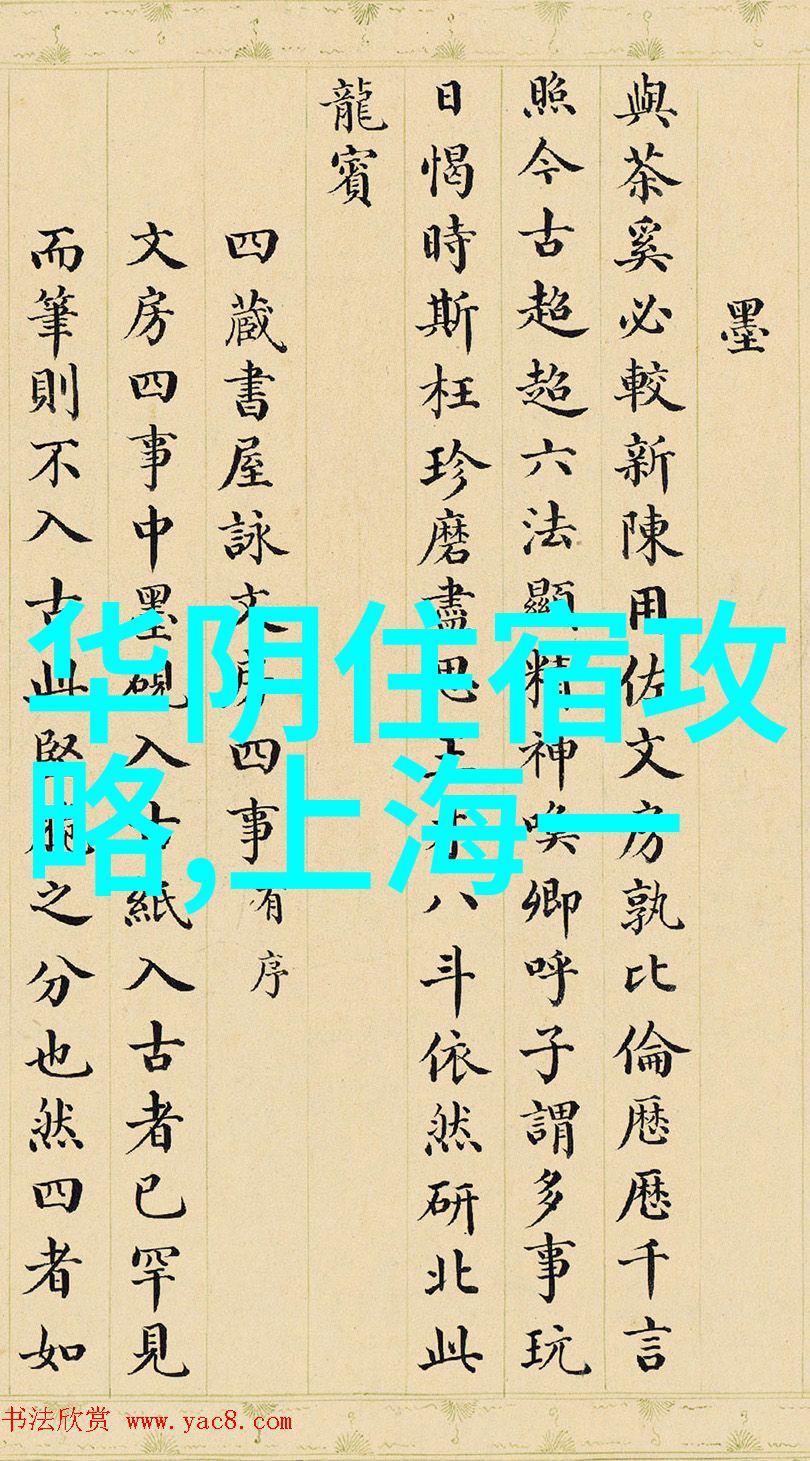 墨
與茶奚必較新陳用佐文房孰比倫歷歷千言
照今古超超六法顯精神喚卿呼子謂多事玩
日愒時斯枉珍磨盡思王才八斗依然研北此
龍賓
四藏書屋詠文房四事有序
文房四事中墨硯入古紙入古者已罕見
而筆則不入古此堅脆之分也然四者如
华阴住宿攻
略,上海一
书法欣赏 www.yac8.com